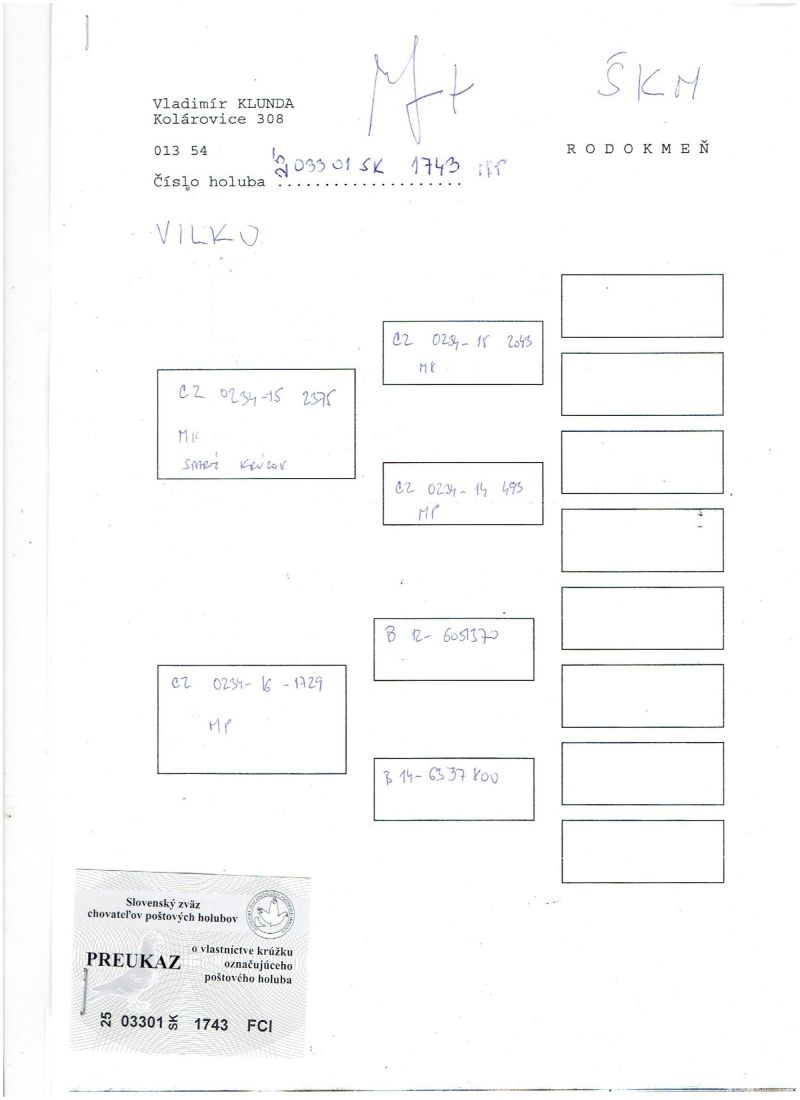 M+
ŠKM
Vladimír KLUNDA
Kolárovice 308
013 54
RODOKMEŇ
25 03301 SK 1743 MP
Číslo holuba ....................
VILKO
CZ 0234-15 2043
MK
CZ 0234-15 2375
MK
KRÚŽOK
CZ 0234-14 493
MP
B 12-6051370
CZ 0234-16-1729
MP
B 14-6337800
Slovenský zväz
chovateľov poštových holubov
PREUKAZ
o vlastníctve krúžku
označujúceho
poštového holuba
25 03301 SK 1743 FCI